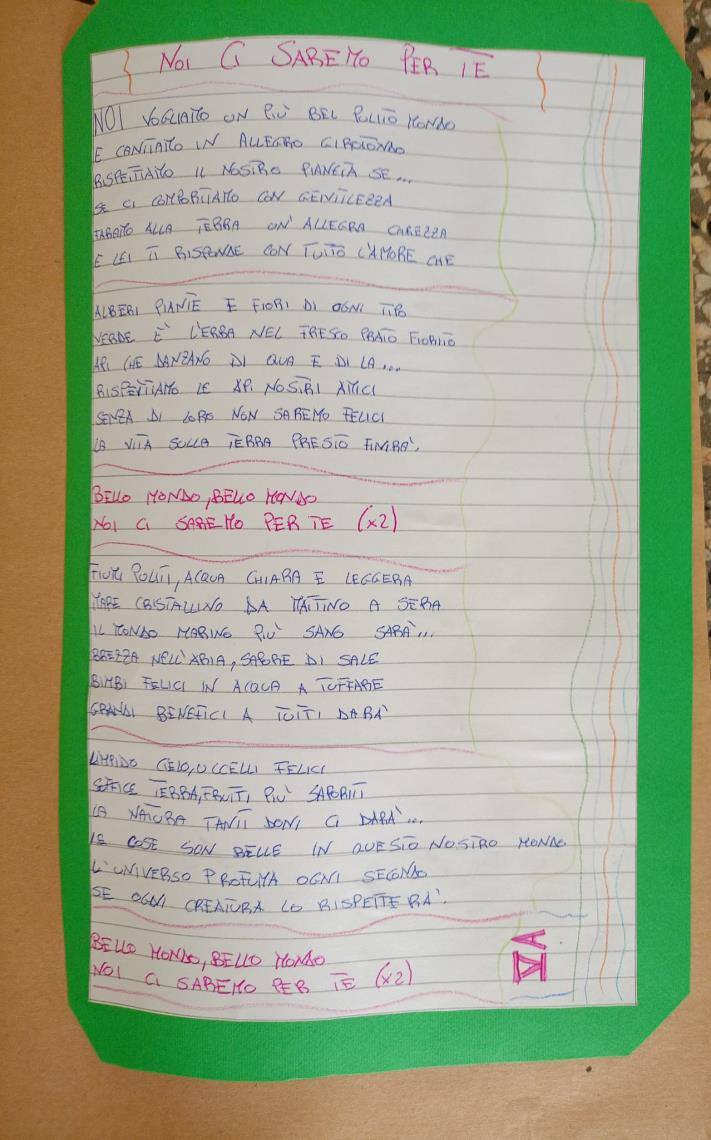 NOI CI SAREMO PER TE
NOI VOGLIAMO UN PIÙ BEL PULITO MONDO
E CANTIAMO IN ALLEGRO GIROTONDO
RISPETTIAMO IL NOSTRO PIANETA SE...
SE CI COMPORTIAMO CON GENTILEZZA
FAREMO ALLA TERRA UN' ALLEGRA CAREZZA
E LEI TI RISPONDE CON TUTTO L'AMORE CHE
ALBERI PIANTE E FIORI DI OGNI TIPO
VERDE E' L'ERBA NEL FRESCO PRATO FIORITO
API CHE DANZANO DI QUA E DI LA...
RISPETTIAMO LE API NOSTRI AMICI
SENZA DI LORO NON SAREMO FELICI
LA VITA SULLA TERRA PRESTO FINIRA'.
BELLO MONDO, BELLO MONDO
NOI CI SAREMO PER TE (x2)
FIUMI PULITI, ACQUA CHIARA E LEGGERA
MARE CRISTALLINO DA MATTINO A SERA
IL MONDO MARINO PIU' SANO SARA'...
BREZZA NELL'ARIA, SAPORE DI SALE
BIMBI FELICI IN ACQUA A TUFFARE
GRANDI BENEFICI A TUTTI DARA'
LIMPIDO CIELO, UCCELLI FELICI
SOFFICE TERRA, FRUTTI PIU' SAPORITI
LA NATURA TANTI DONI CI DARA'...
LE COSE SON BELLE IN QUESTO NOSTRO MONDO
L'UNIVERSO PROFUMA OGNI SECONDO
SE OGNI CREATURA LO RISPETTERA'.
BELLO MONDO, BELLO MONDO
NOI CI SAREMO PER TE (x2)
VA